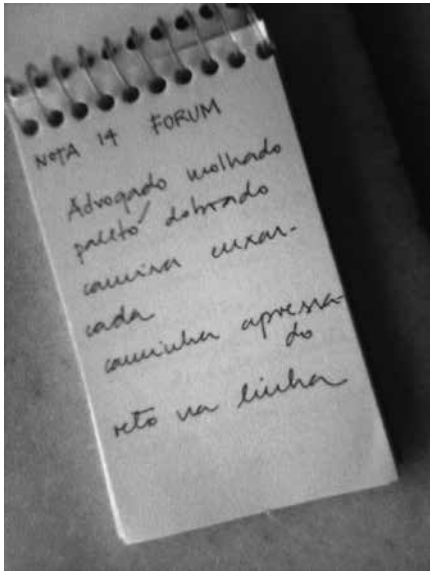 NOTA 14 FORUM
Advogado molhado
paletó dobrado
camisa enxar-
cada
caminha apressa-
do
reto na linha